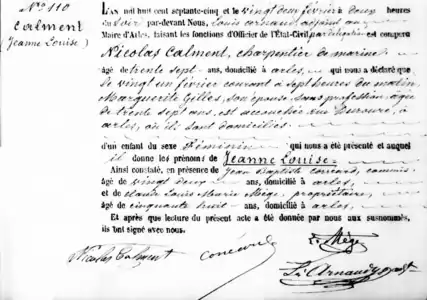 N° 110
Calment
(Jeanne Louise)
L'AN mil huit cent septante-cinq et le vingt deux février à deux heures
du soir par-devant Nous, Louis Arnaud adjoint au
Maire d'Arles, faisant les fonctions d'Officier de l'État-Civil par délégation est comparu
Nicolas Calment, charpentier de marine
âgé de trente sept ans, domicilié à arles, qui nous a déclaré que
le vingt un février courant à sept heures du matin,
Marguerite Gilles, son épouse, sans profession, âgée
de trente sept ans, est accouchée au
arles, où ils sont domiciliés
d'un enfant du sexe Féminin qui nous a été présenté et auquel
il donne les prénoms de Jeanne Louise
Ainsi constaté, en présence de Jean Baptiste commis
âgé de vingt deux ans, domicilié à arles,
et de Louis Marie Mège, propriétaire,
âgé de cinquante huit ans, domicilié à arles,
Et après que lecture du présent acte a été donnée par nous aux susnommés,
ils ont signé avec nous.
Nicolas Calment
L. Mège
Ls Arnaud